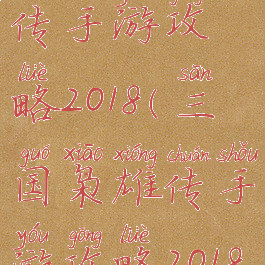 传手游攻
lüè sān
略2018(三
guó xiāo xióng chuán shǒu
国枭雄传手
yóu gōng lüè
游攻略2018